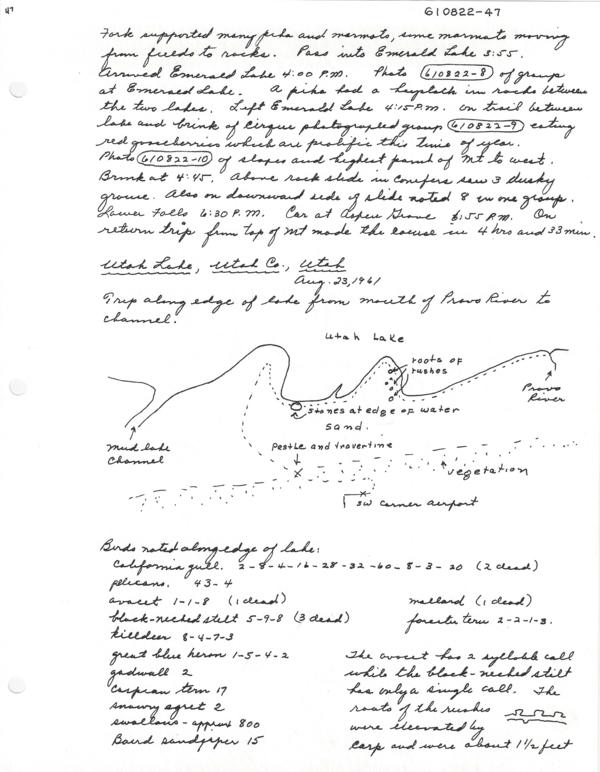 47
610822-47
Fork supported many pika and marmots, some marmots moving
from fields to rocks. Pass into Emerald Lake 3:55.
Arrived Emerald Lake 4:00 P.M. Photo (610822-8) of group
at Emerald Lake. A pika had a haystack in rocks between
the two lakes. Left Emerald Lake 4:15 P.M. On trail between
lake and brink of cirque photographed group (610822-9) eating
red gooseberries which are prolific this time of year.
Photo (610822-10) of slopes and highest point of Mt to west.
Brink at 4:45. Above rock slide in conifers saw 3 dusky
grouse. Also on downward side of slide noted 8 in one group.
Lower Falls 6:30 P.M. Car at Aspen Grove 6:55 P.M. On
return trip from top of Mt made the course in 4 hrs and 33 min.
Utah Lake, Utah Co., Utah
Aug. 23, 1961
Trip along edge of lake from mouth of Provo River to
channel.
Utah Lake
roots of
rushes
Provo
River
stones at edge of water
sand.
Mud lake
Channel
Pestle and travertine
vegetation
SW corner airport
Birds noted along edge of lake:
California gull. 2-8-4-16-28-32-60-8-3-20 (2 dead)
pelicans. 43-4
avocet 1-1-8 (1 dead)
mallard (1 dead)
black-necked stilt 5-9-8 (3 dead)
forster tern 2-2-1-3.
killdeer 8-4-7-3
great blue heron 1-5-4-2
gadwall 2
caspian tern 17
snowy egret 2
swallows - approx 800
Baird sandpiper 15
The avocet has 2 syllable call
while the black-necked stilt
has only a single call. The
roots of the rushes
were elevated by
carp and were about 1½ feet